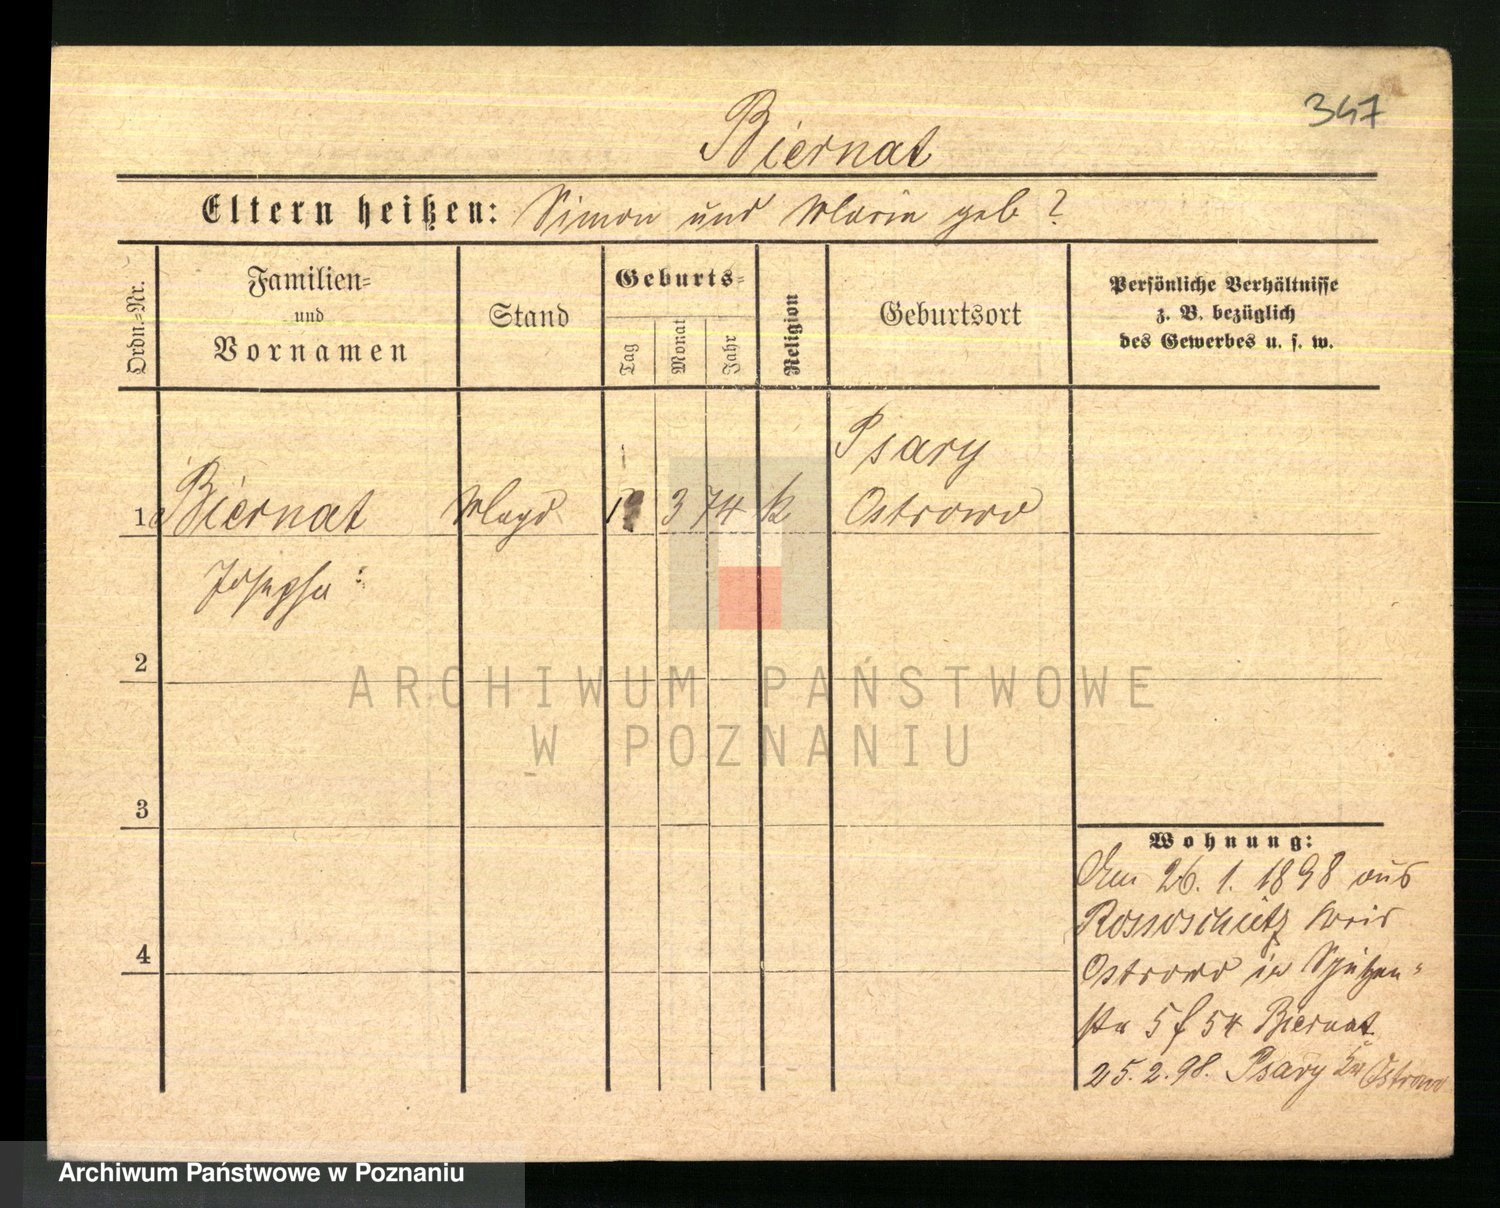 347
Biernat
Eltern heißen: Simon und Maria geb ?
Ordn.-Nr.
Familien-
und
Vornamen
Stand
Geburts-
Tag
Monat
Jahr
Religion
Geburtsort
Persönliche Verhältnisse
z. B. bezüglich
des Gewerbes u. s. w.
Psary
1 Biernat Magd 3 74 k Ostrowo
Josepha
2
ARCHIWUM PAŃSTWOWE
W POZNANIU
3
Wohnung:
Am 26. 1. 1898 aus
Rossoschütz Kreis
4
Ostrowo in Schützen-
str 5 f 54 Biernat
25. 2. 98. Psary Kr Ostrowo
Archiwum Państwowe w Poznaniu